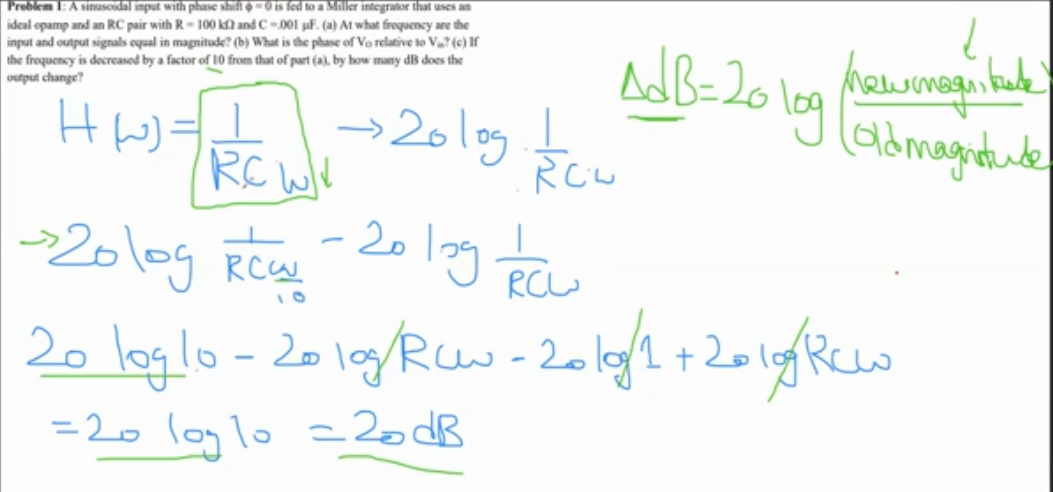 Problem 1: A sinusoidal input with phase shift ϕ = 0 is fed to a Miller integrator that uses an
ideal opamp and an RC pair with R = 100 kΩ and C =.001 μF. (a) At what frequency are the
input and output signals equal in magnitude? (b) What is the phase of Vo relative to Vin? (c) If
the frequency is decreased by a factor of 10 from that of part (a), by how many dB does the
output change?
ΔdB = 20 log (new magnitude / old magnitude)
H(ω) = 1 / RCω → 20 log 1 / RCω
→ 20 log 1 / RC ω/10 - 20 log 1 / RCω
20 log 10 - 20 log RCω - 20 log 1 + 20 log RCω
= 20 log 10 = 20 dB